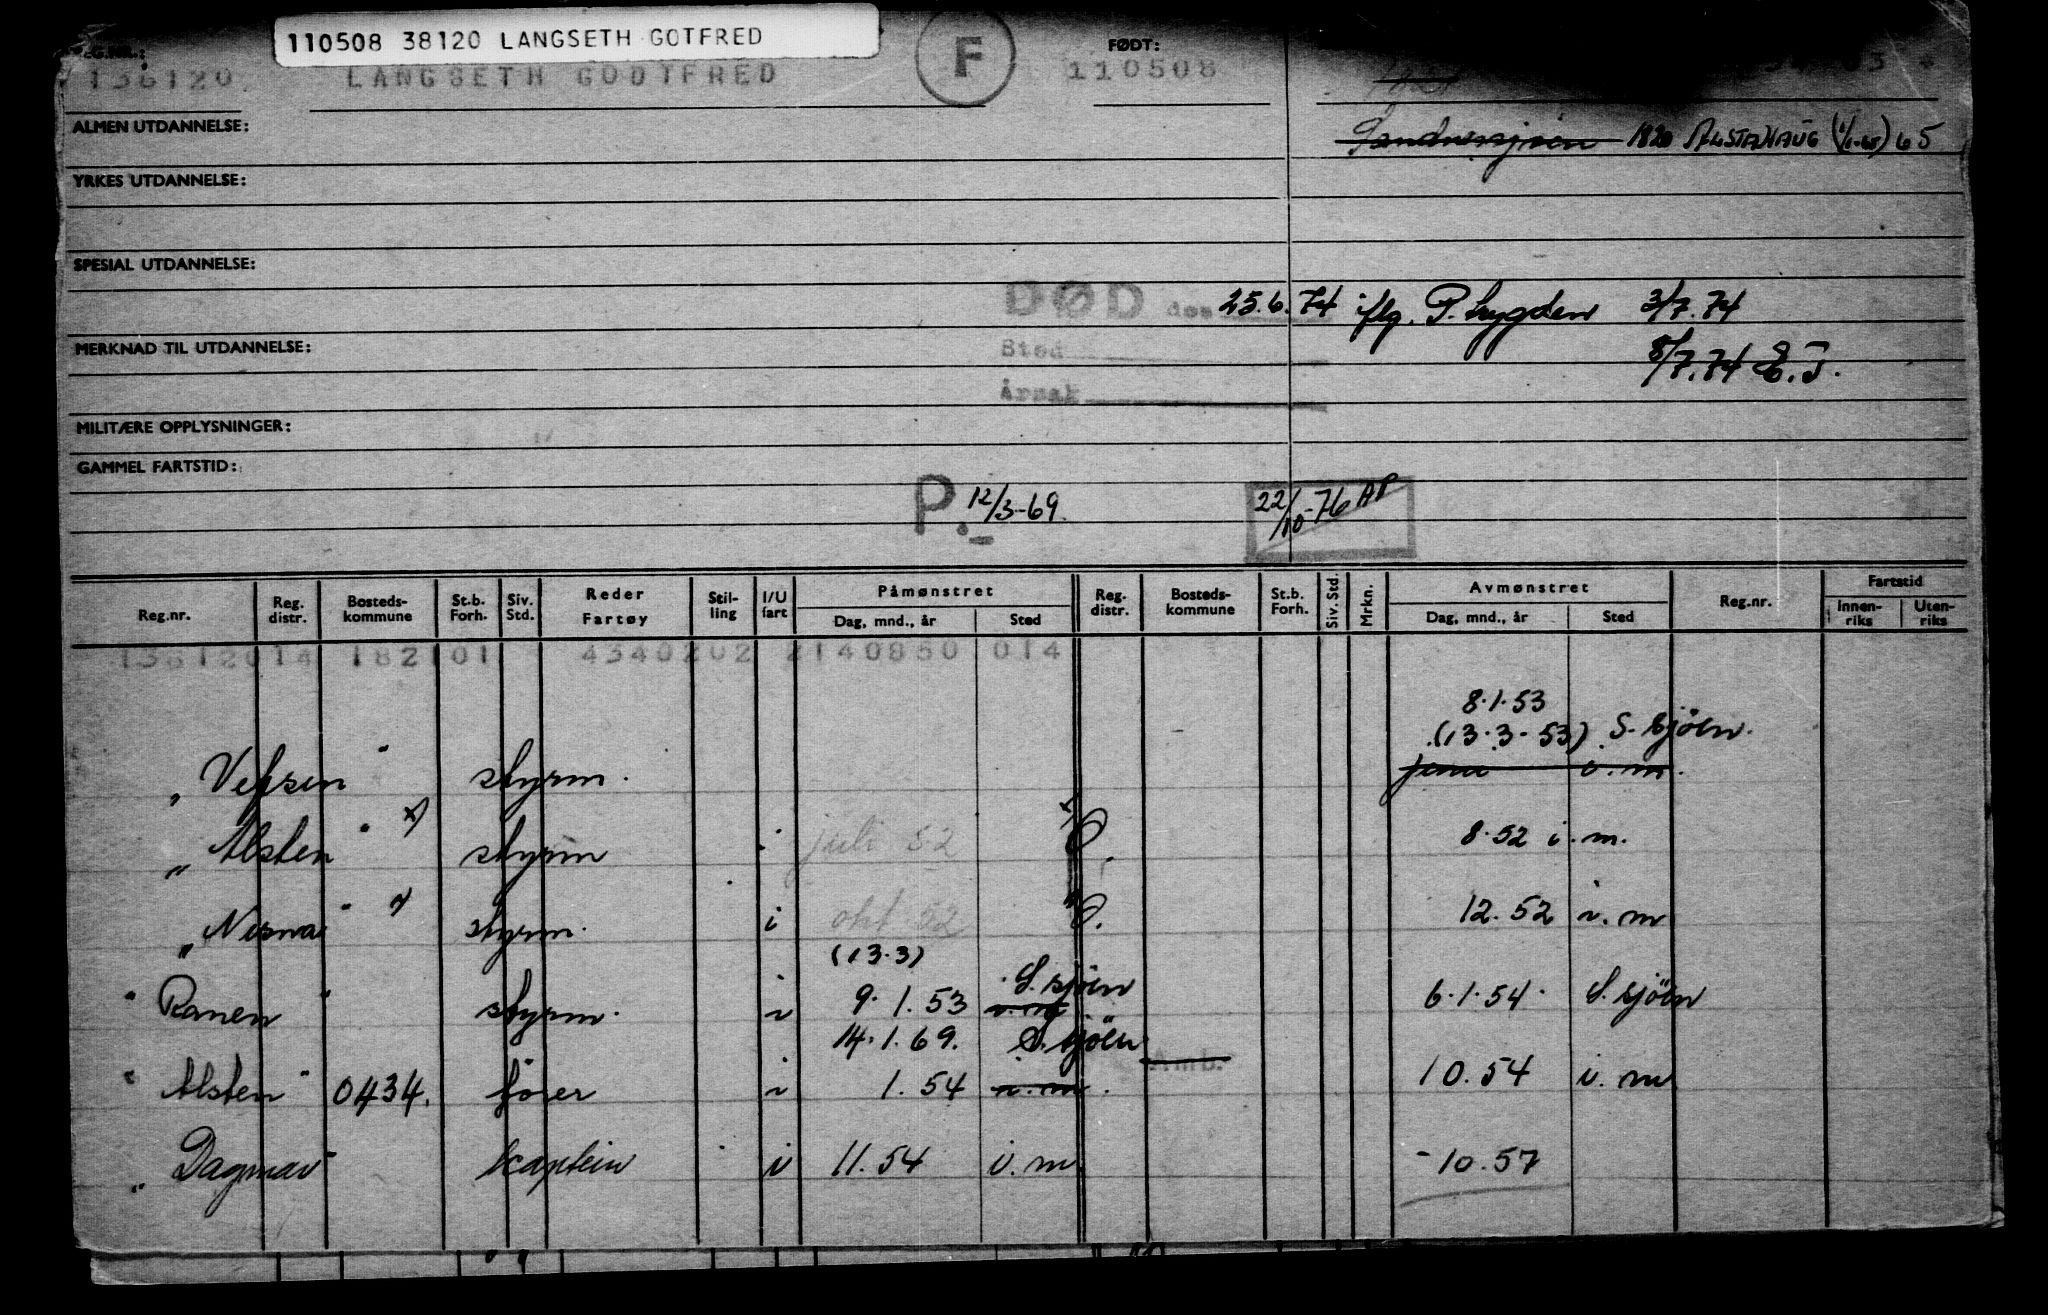 110508 38120 LANGSETH GOTFRED
136120 LANGSETH GODTFRED F FØDT: 110508
ALMEN UTDANNELSE:
Sandnessjøen 1820 ALSTAHAUG (1/1-65) 65
YRKES UTDANNELSE:
SPESIAL UTDANNELSE:
DØD den 25.6.74 iflg. P. Lygden 3/7.74
MERKNAD TIL UTDANNELSE: Sted 8/7.74 E.J.
Årsak
MILITÆRE OPPLYSNINGER:
GAMMEL FARTSTID:
P. 12/3-69. 22/10-76 AP
Reg.nr. Reg. distr. Bosteds- kommune St.b. Forh. Siv. Std. Reder Fartøy Stil- ling I/U fart Påmønstret Dag, mnd., år Sted Reg. distr. Bosteds- kommune St.b. Forh. Siv. Std. Mrkn. Avmønstret Dag, mnd., år Sted Reg.nr. Fartstid Innen- riks Uten- riks
136120 14 182101 4340202 2140850 014
8.1.53
(13.3-53) S.sjöen.
" Vefsen " styrm. i.m.
" Alsten " x) styrm i juli 52 8.52 i.m.
" Nesna " styrm. i okt 52 12.52 i.m
(13.3)
" Ranen " styrm. i 9.1.53 i.m S.sjöen 6.1.54. S.sjöen
14.1.69. S.sjöen
" Alsten " 0434. förer i 1.54 i.m. 10.54 i.m
" Dagmar " kaptein i 11.54 i.m -10.57